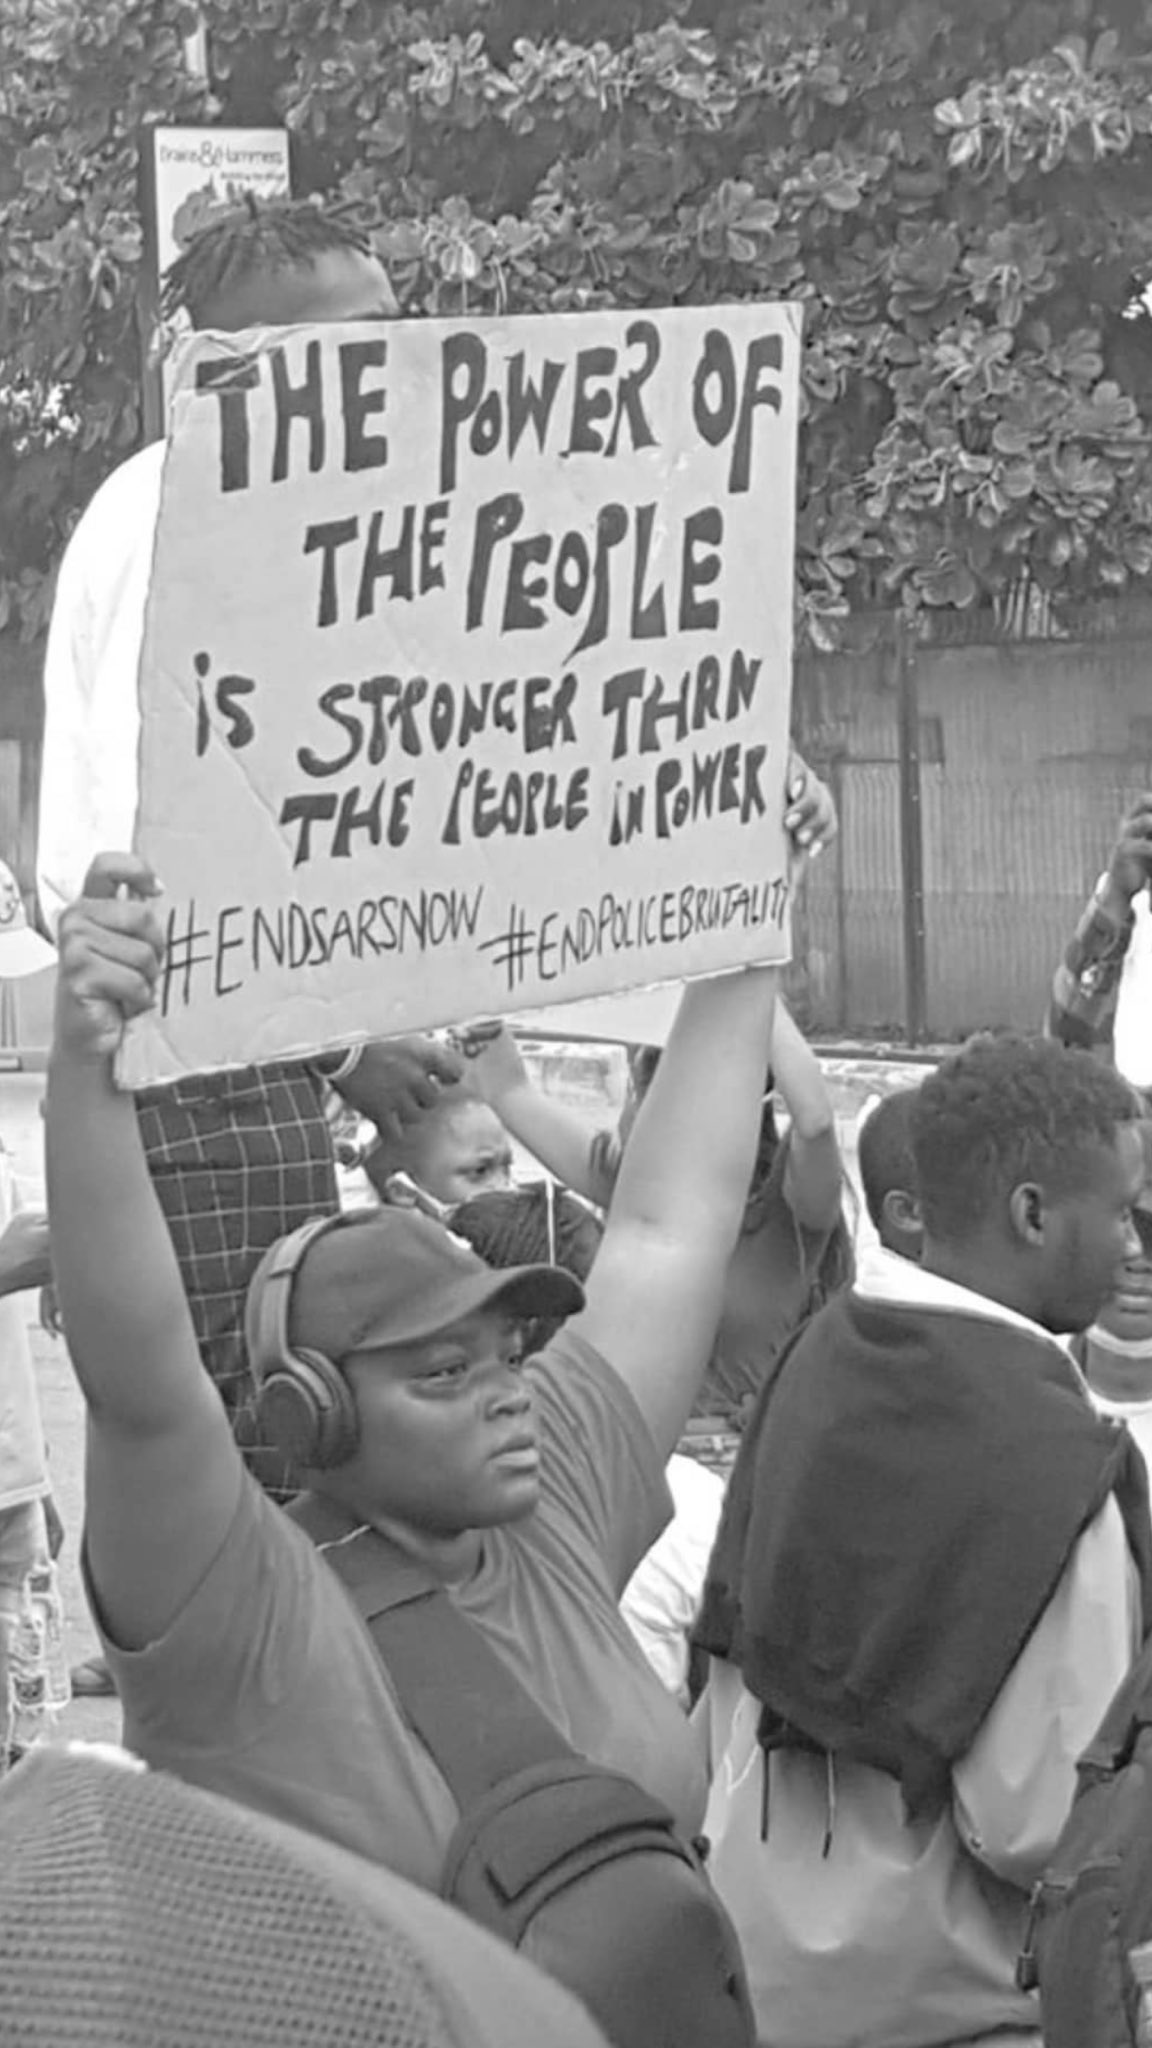 Brains&Hammers
THE POWER OF
THE PEOPLE
iS STRONGER THAN
THE PEOPLE in POWER
#ENDSARSNOW #ENDPOLICEBRUTALITY